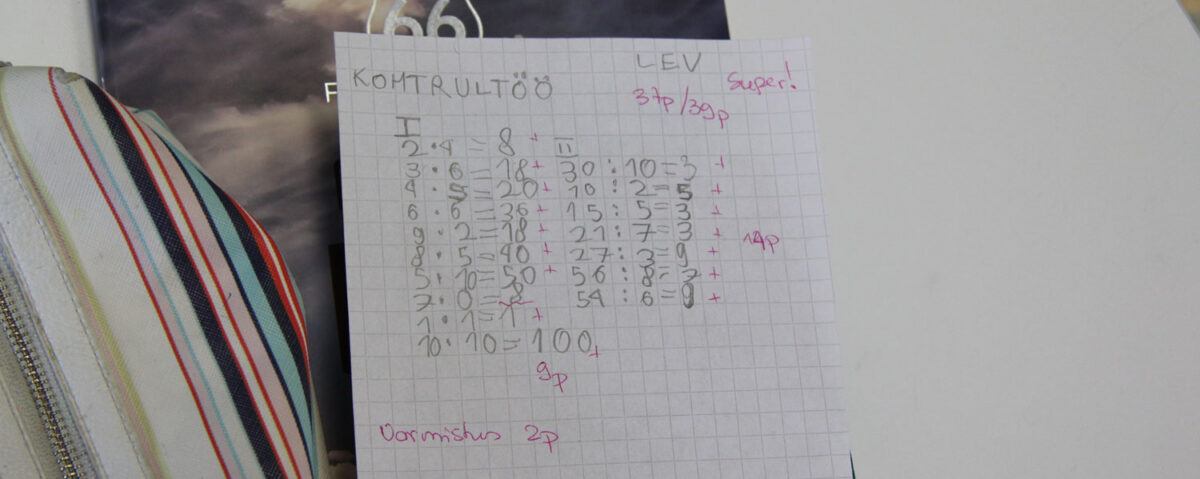 66
F
LEV
KOMTRULTÖÖ
Super!
37p/39p
I
2·4=8 +
3·6=18+
4·5=20+
6·6=36+
9·2=18+
8·5=40+
5·10=50+
1·1=1+
10·10=100+
9p
II
30:10=3 +
10:2=5 +
15:5=3 +
21:7=3 +
27:3=9 +
56:8=7 +
54:6=9 +
14p
Vormistus 2p